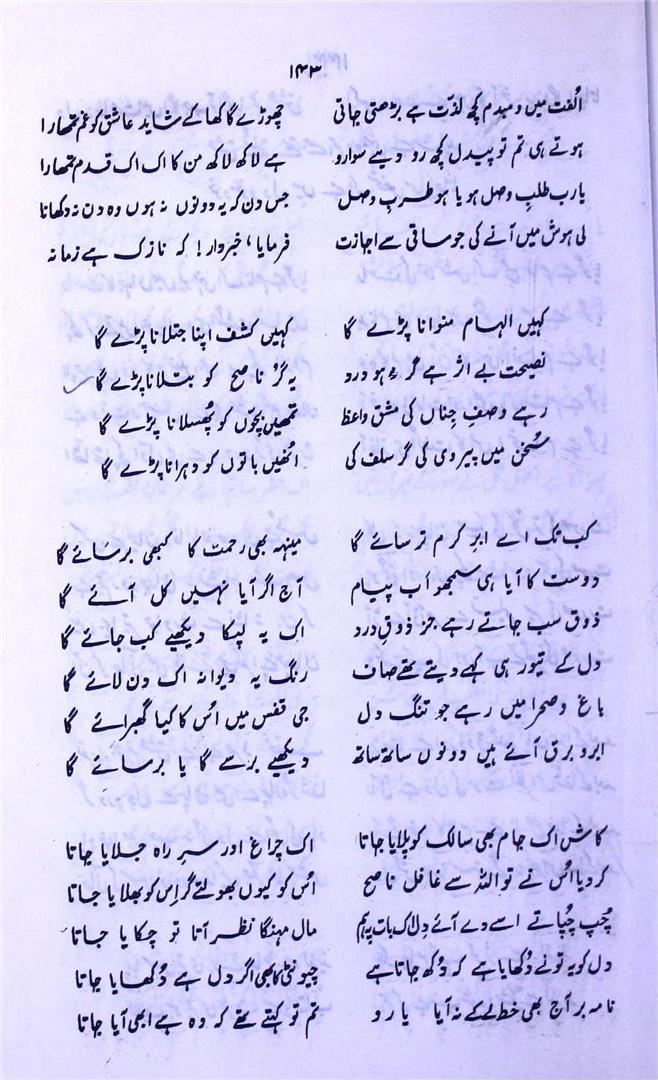 ۱۴۳
الُفت میں دمبدم کچھ لذّت ہے بڑھتی جاتی چھوڑے گا کھا کے شاید عاشق کو غم تمھارا
ہوتے ہی تم تو پیدل کچھ رو دیے سوارو ہے لاکھ لاکھ من کا اک اک قدم تمھارا
یا رب طلبِ وصل ہو یا ہو طربِ وصل جس دن کہ یہ دونوں نہ ہوں وہ دن نہ دکھانا
لی ہوش میں آنے کی جو ساقی سے اجازت فرمایا، خبردار! کہ نازک ہے زمانہ
کہیں الہام منوانا پڑے گا کہیں کشف اپنا جتلانا پڑے گا
نصیحت بے اثر ہے گر نہ ہو درد یہ گُر ناصح کو بتلانا پڑے گا
رہے وصفِ جِناں کی مشق واعظ تمھیں بچّوں کو پُھسلانا پڑے گا
سُخن میں پیروی کی گر سلف کی انُھیں باتوں کو دہرانا پڑے گا
کب تک اے ابرِ کرم ترسائے گا مینہہ بھی رحمت کا کبھی برسائے گا
دوست کا آیا ہی سمجھو اَب پیام آج اگر آیا نہیں کل آئے گا
ذوق سب جاتے رہے جز ذوقِ درد اِک یہ لپکا دیکھیے کب جائے گا
دل کے تیور ہی کہے دیتے تھے صاف رنگ یہ دیوانہ اک دن لائے گا
باغ و صحرا میں رہے جو تنگ دل جی قفس میں اسُ کا کیا گھبرائے گا
ابر و برق آئے ہیں دونوں ساتھ ساتھ دیکھیے برسے گا یا برسائے گا
کاش اک جام بھی سالک کو پلایا جاتا اک چراغ اور سرِ راہ جلایا جاتا
کر دیا اسُ نے تو اللہ سے غافل ناصح اسُ کو کیوں بھولتے گر اِس کو بھلایا جاتا
چُپ چُپاتے اسے دے آئے دل اک بات پہ ہم مال مہنگا نظر آتا تو چکایا جاتا
دل کو یہ تو نے دُکھایا ہے کہ دُکھ جاتا ہے چیونٹی کا بھی اگر دل ہے دُکھایا جاتا
نامہ بر آج بھی خط لے کے نہ آیا یارو تم تو کہتے تھے کہ وہ ہے ابھی آیا جاتا